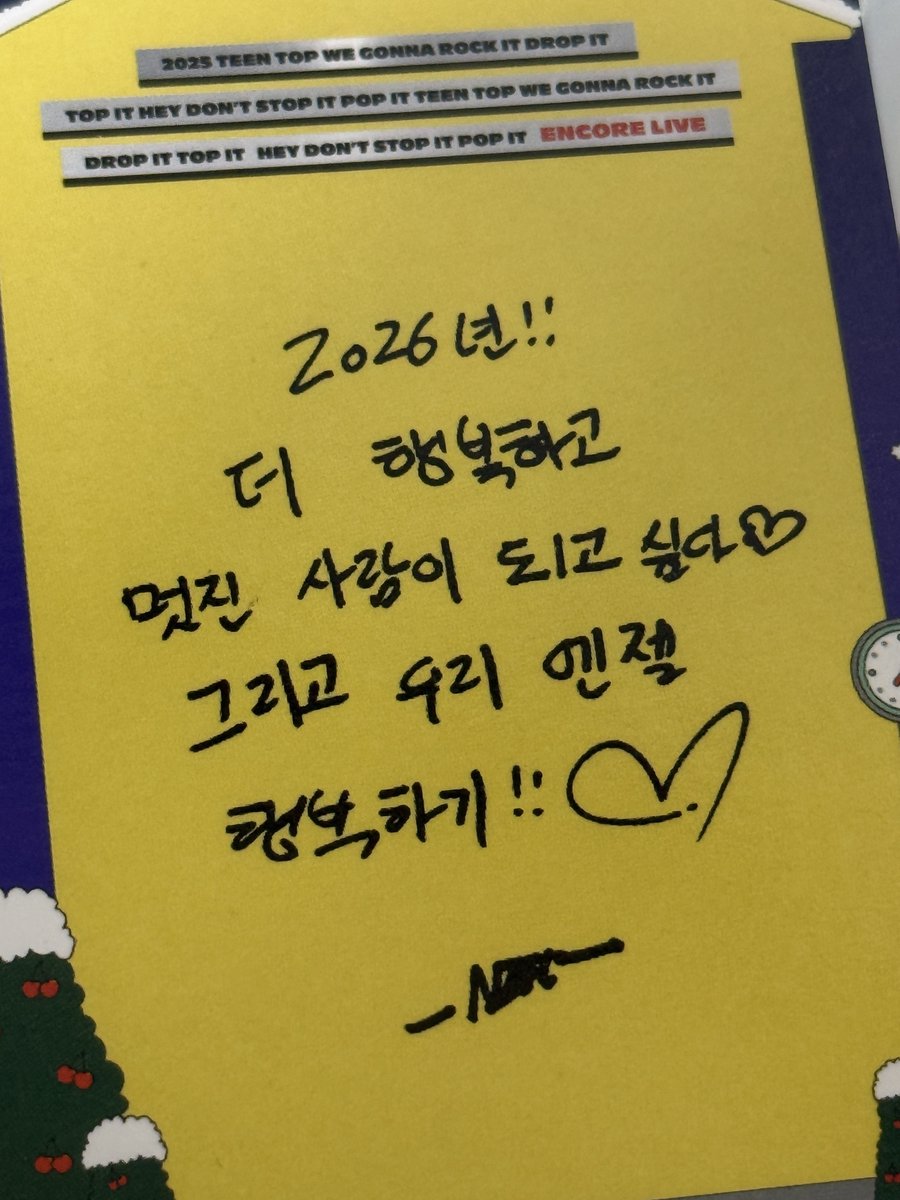 2025 TEEN TOP WE GONNA ROCK IT DROP IT
TOP IT HEY DON'T STOP IT POP IT TEEN TOP WE GONNA ROCK IT
DROP IT TOP IT HEY DON'T STOP IT POP IT ENCORE LIVE
2026년!!
더 행복하고
멋진 사람이 되고 싶다♡
그리고 우리 엔젤
행복하기!! ♡